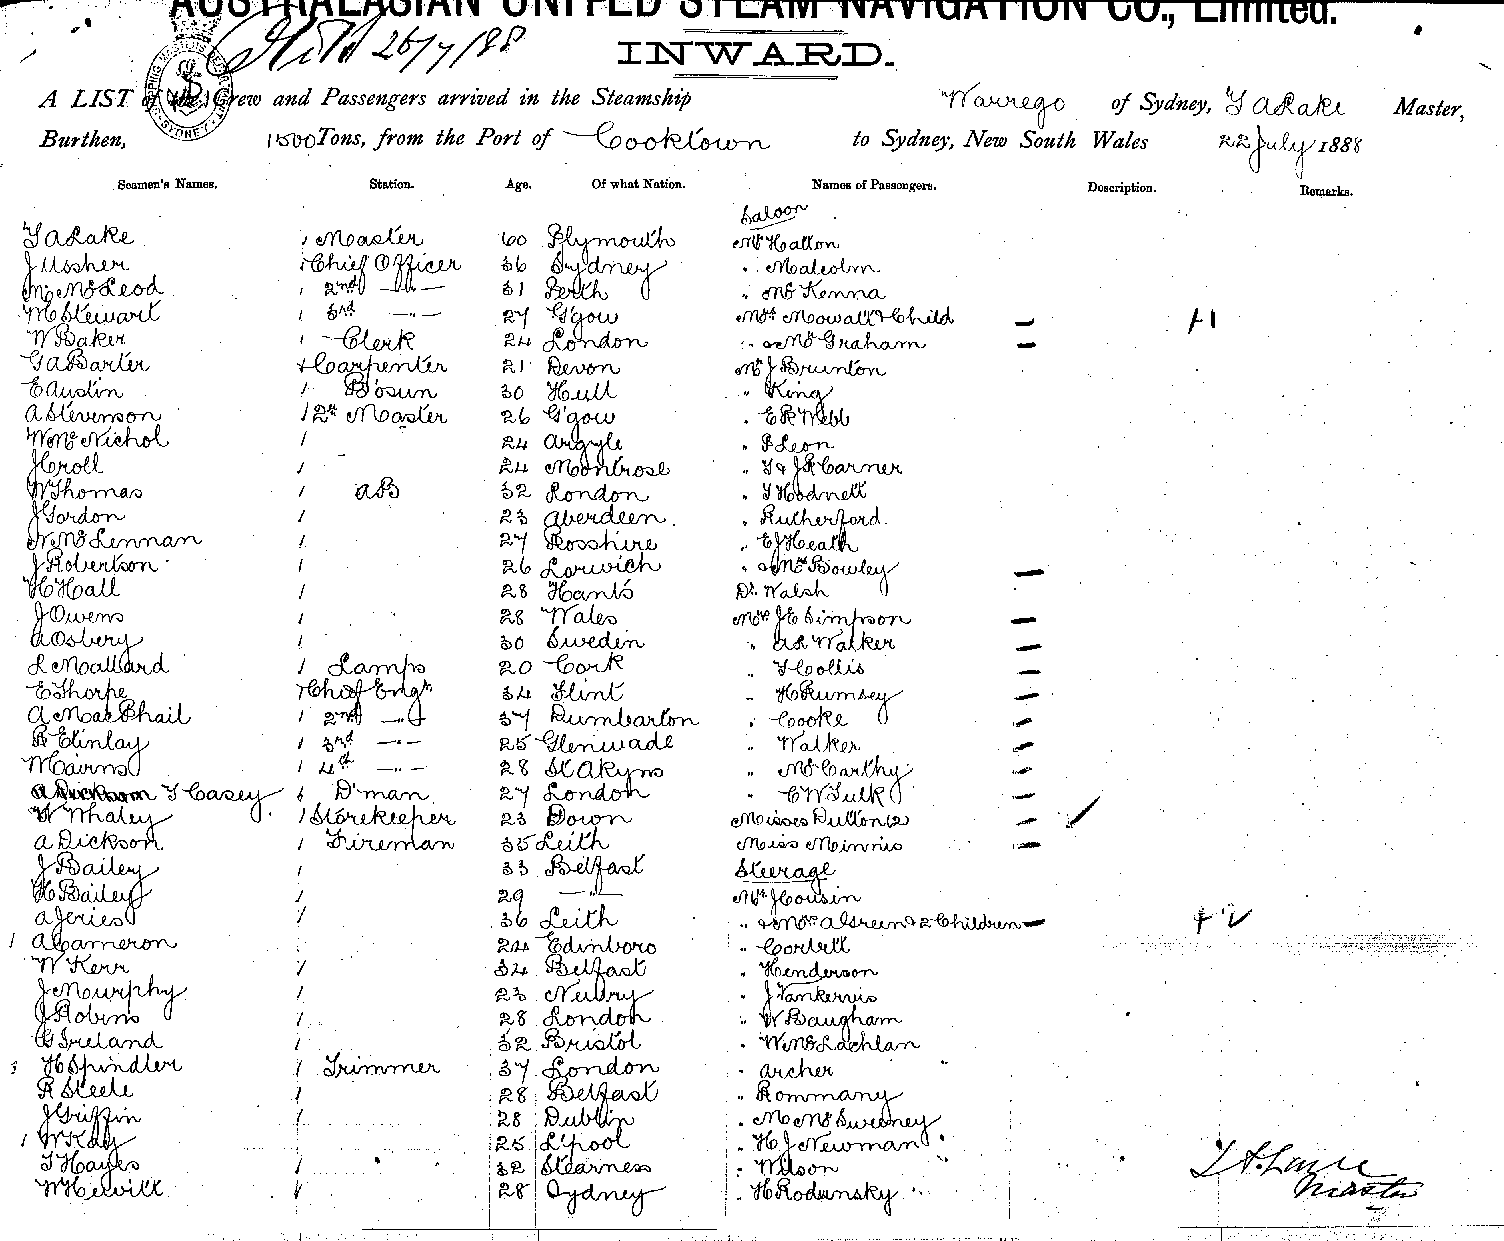 AUSTRALASIAN UNITED STEAM NAVIGATION CO., Limited.
26/7/88
INWARD.
A LIST of the Crew and Passengers arrived in the Steamship Warrego of Sydney, T A Lake Master,
Burthen, 1500 Tons, from the Port of Cooktown to Sydney, New South Wales 22 July 1888
Seamen's Names. Station. Age. Of what Nation. Names of Passengers. Description. Remarks.
Saloon
T A Lake 1 Master 60 Plymouth Mr Hatton
J Ussher 1 Chief Officer 36 Sydney " Malcolm
M McLeod 1 2nd —"— 31 Perth " McKenna
M Stewart 1 3rd —"— 27 G'gow Mrs Mowatt & Child — +1
W Baker 1 Clerk 24 London " & Mrs Graham —
G A Barter 1 Carpenter 21 Devon Mr J Brunton
E Austin 1 Bosun 30 Hull " King
A Stevenson 1 2nd Master 26 G'gow " E R Webb
W McNichol 1 24 Argyle " P Leon
J Croll 1 24 Montrose " T & J R Carner
W Thomas 1 AB 32 London " T Hodnett
J Gordon 1 23 Aberdeen " Rutherford
N McLennan 1 27 Rosshire " E J Heath
J Robertson 1 26 Lerwich " & Mrs Bowley —
H Hall 1 28 Hants Dr Walsh
J Owens 1 28 Wales Mrs J E Simpson —
A Osbery 1 30 Sweden " A L Walker —
L Mallard 1 Lamps 20 Cork " T Collis —
E Thorpe 1 Chief Engr 34 Flint " H Rumsey —
A MacPhail 1 2nd —"— 37 Dumbarton " Cooke —
R Finlay 1 3rd —"— 25 Glenwade " Walker —
M Cairns 1 4th —"— 28 St " McCarthy —
A Dickson T Casey 1 D'man 27 London " C W Tulk —
W Whaley 1 Storekeeper 23 Down Misses Dutton (2 —
A Dickson 1 Fireman 35 Leith Miss Minnis —
J Bailey 1 33 Belfast Steerage
H Bailey 1 29 —"— Mr J Cousin
A Jeries 1 36 Leith " & Mrs A Green & 2 Children — +2
1 A Cameron 1 24 Edinboro " Corbett
W Kerr 1 34 Belfast " Henderson
J Murphy 1 23 Newry " J Vankervis
J Robins 1 28 London " W Baugham
G Ireland 1 32 Bristol " W McLachlan
3 H Spindler 1 Trimmer 37 London " Archer
R Steele 1 28 Belfast " Rommany
J Griffin 1 28 Dublin " M McSweeney
1 W Kay 1 25 L'pool " H J Newman
T Hayes 1 32 Stearness " Wilson
W Hewitt 1 28 Sydney " H Rodunsky
T A Lake
Master